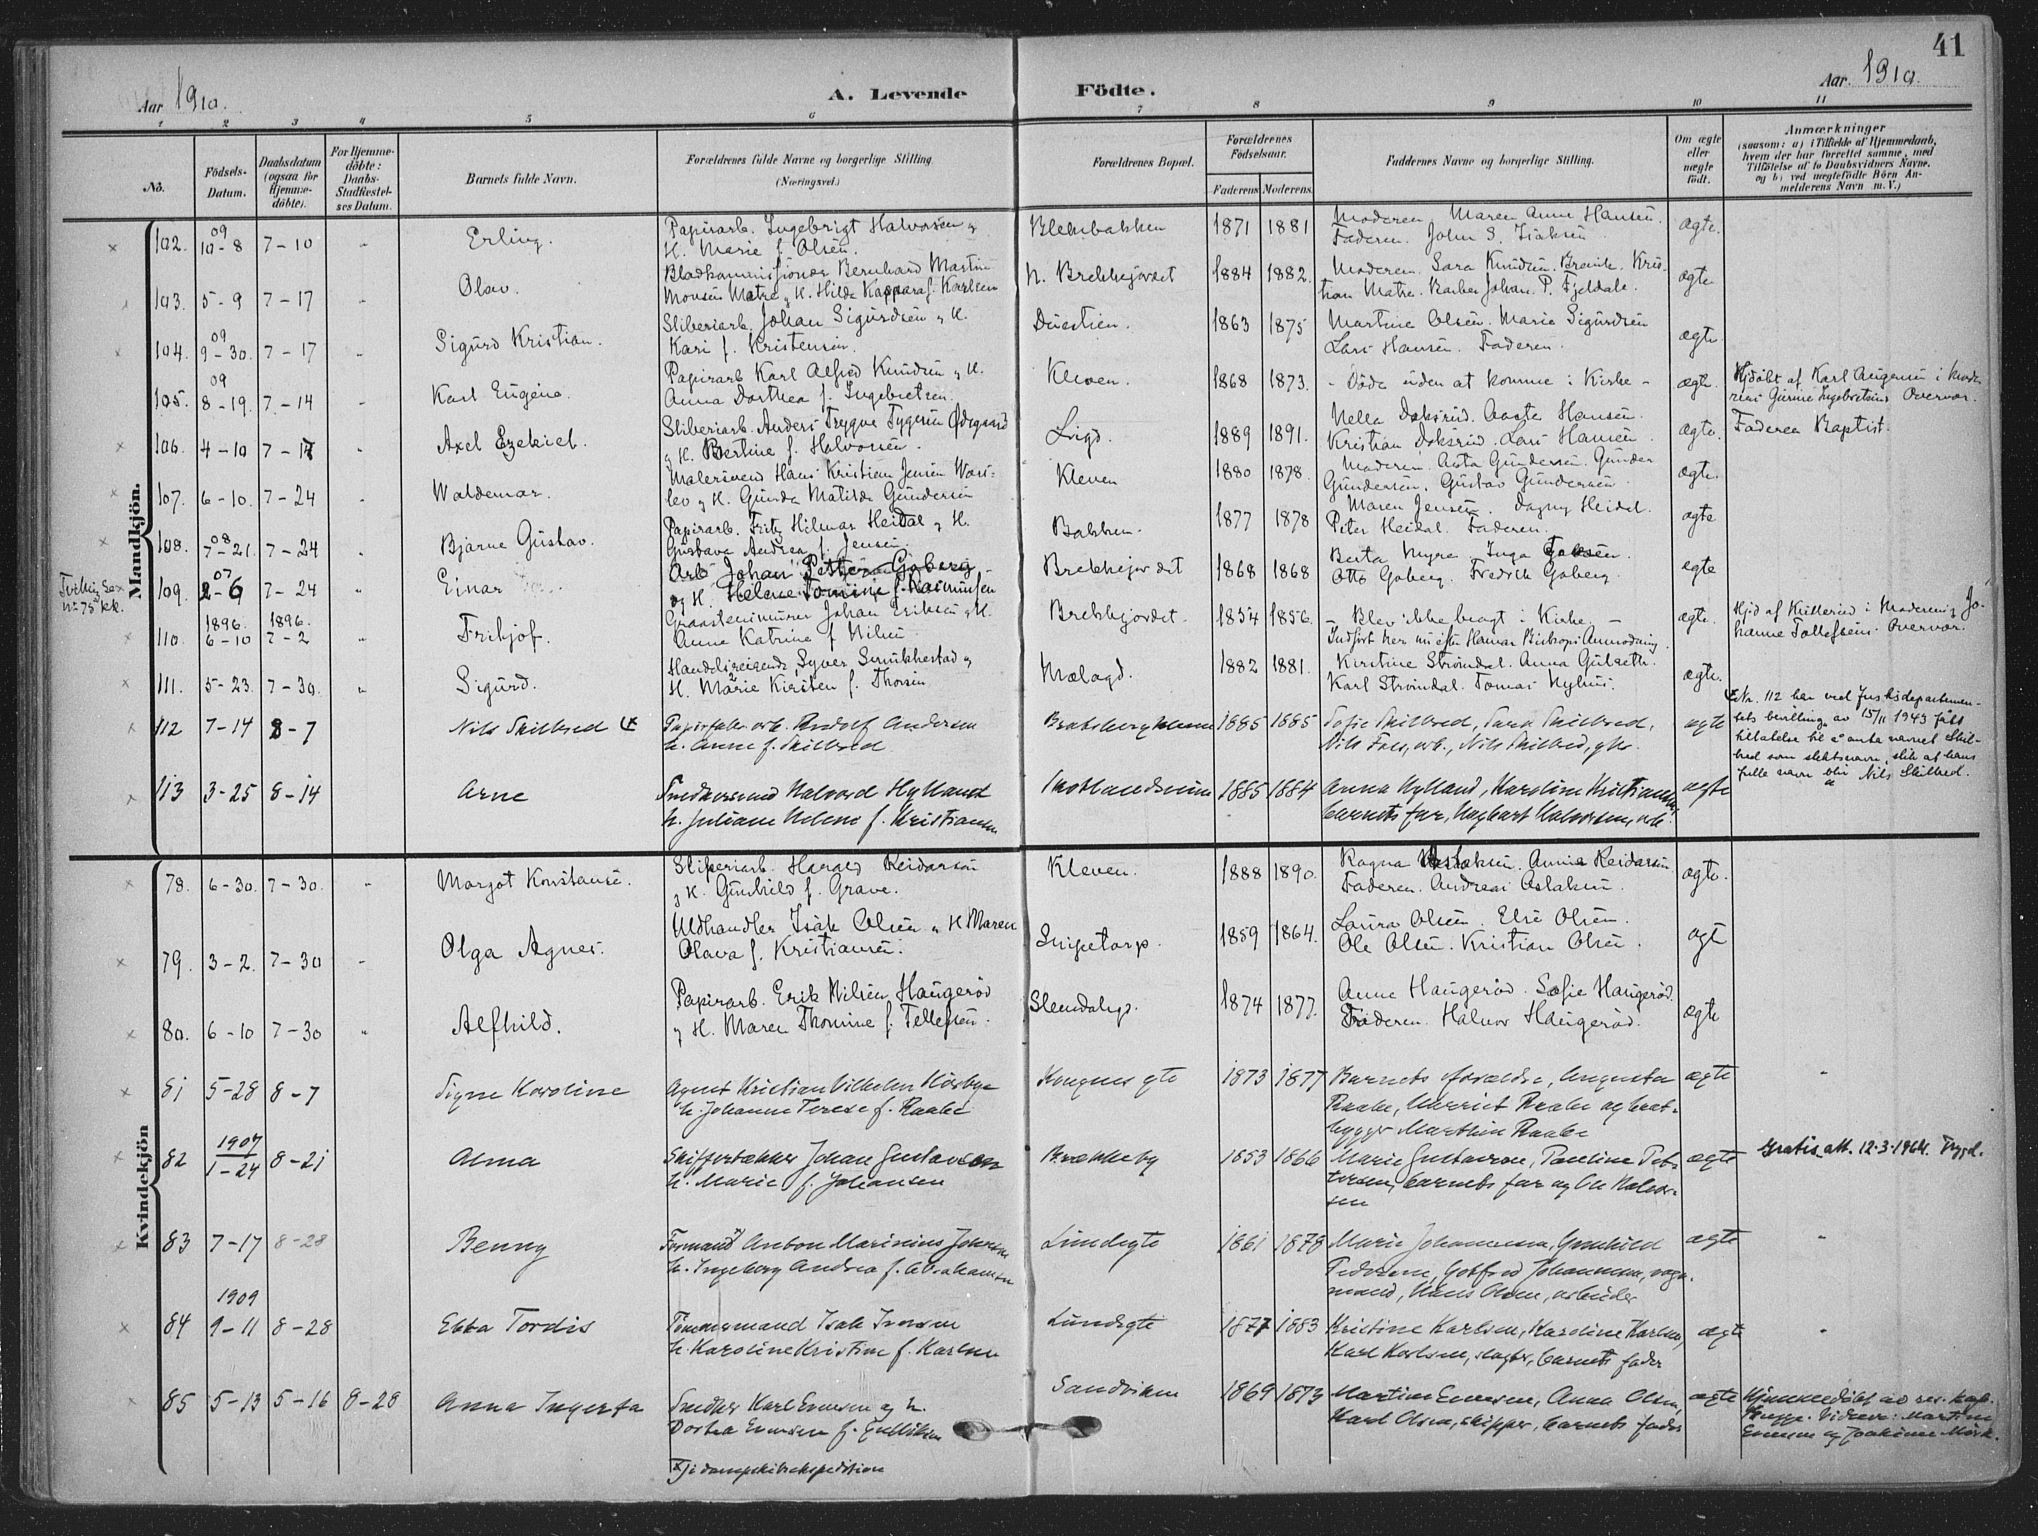 41
Aar 1910.
A. Levende
Födte.
Aar. 1910.
1 2 3 4 5 6 7 8 9 10 11
No.
Födsels-Datum.
Daabsdatum (ogsaa for Hjemme-döbte).
For Hjemme-döbte: Daabs-Stadfæstel-ses Datum.
Barnets fulde Navn.
Forældrenes fulde Navne og borgerlige Stilling. (Næringsvei.)
Forældrenes Bopæl.
Forældrenes Födselsaar.
Faderens. Moderens.
Faddernes Navne og borgerlige Stilling.
Om ægte eller uægte födt.
Anmærkninger
(saasom: a) i Tilfælde af Hjemmedaab, hvem der har forrettet samme, med Tilföielse af to Daabsvidners Navne. og b) ved uægtefödte Börn An-melderens Navn m. V.)
Mandkjön.
102. 09 10-8 7-10 Erling. Papirarb. Ingebrigt Halvorsen og
H. Marie f. Olsen. Blekebakken 1871 1881 Moderen. Maren Anne Hansen.
Faderen. John S. Isaksen ægte.
103. 5-9 7-17 Olav. Bladkommissionær Bernhard Martin
Monsen Matre og H. Hilda f. Karlsen N. Brekkejordet 1884 1882. Moderen. Sara Knudsen. Kris-
tian Matre. Barber Johan P. Fjeldale. ægte
104. 09 9-30. 7-17 Sigurd Kristian. Sliberiarb. Johan Sigurdsen og H.
Kari f. Kristensen. Duestien. 1863 1875 Martine Olsen. Marie Sigurdsen
Lars Hansen. Faderen. ægte
105. 09 8-19. 7-14 Karl Eugene. Papirarb Karl Alfred Knudsen og H.
Anna Dorthea f. Ingebretsen. Kleven. 1868 1873. - Döde uden at komme i Kirke - ægte. Hjdöbt af Karl Augensen i
Overvær.
106. 4-10 7-17 Axel Ezekiel. Sliberiarb. Anders Trygve Tygesen Ödegaard
og H. Bertine f. Halvorsen. 1889 1891. Nella Doksrud. Aaste Hansen.
Kristian Doksrud. Lars Hansen ægte. Faderen Baptist.
107. 6-10. 7-24 Waldemar. Malersvend Hans Kristian Jensen
og H. Gunda Matilde Gundersen Kleven 1880 1878. Moderen. Aasta Gundersen. Gunder
Gundersen. Gustav Gundersen. ægte.
108. 08 7-21. 7-24 Bjarne Gustav. Papirarb. Fritz Hilmar Heidal og H.
Gustava Andrea f. Jensen. Bakken. 1877 1878 Maren Jensen. Dagny Heidal.
Peter Heidal. Faderen. ægte
109. 07 2-6 7-24 Einar Arb Johan Petter Goberg
og H. Helene Tomine f. Rasmussen Brekkejordet 1868 1868 Berta Myre. Inga
Otto Goberg. Fredrik Goberg. ægte
Tvilling se
nr 75 kk.
110. 1896. 6-10 1896. 7-2 Fritjof. Graastensmurer Johan Eriksen og H.
Anne Katrine f Nilsen Brekkejordet. 1854 1856. - Blev ikke bragt i Kirke. -
Indfört her nu efter Hamar Biskops Anmodning. ægte. Hjd af i Moderens og Jo-
hanne Tollefsens Overvær.
111. 5-23. 7-30. Sigurd. Handelsreisende Syver
H. Marie Kirsten f. Thorsen. Mælagd. 1882 1881. Kirstine Strömdal. Anna Gulseth.
Karl Strömdal. Tomas Nyhus. ægte.
112 7-14 8-7 Nils Skilbred Papirfabr.arb. Rudolf Andersen
h. Anne f. Skilbred Bratsbergklæven 1885 1885 Sofie Skilbred, Sara Skilbred,
Nils Foss, arb., Nils Skilbred, ægte Nr. 112 har ved Justisdepartemen-
tets bevilling av 15/11 1943 fått
tillatelse til å anta navnet Skil-
bred som slektsnavn, slik at hans
fulle navn blir Nils Skilbred.
113 3-25 8-14 Arne Smedkersvend Halvord Hylland
h. Juliane Helene f. Kristiansen 1885 1884 Anna Hylland, Karoline Kristiansen
barnets far, Hagbart Halvorsen, arb. ægte
Kvindekjön
78. 6-30. 7-30. Margot Konstanse. Sliperiarb. Harald Reidarson
og H. Gunhild f. Grave. Kleven. 1888 1890. Ragna Aslaksen. Anna Reidarson
Faderen. Andreas Aslaksen. ægte.
79. 3-2. 7-30 Olga Agnes. Uldhandler Isak Olsen og H Maren
Olava f. Kristiansen. Snipetorp. 1859 1864. Laura Olsen. Else Olsen.
Ole Olsen. Kristian Olsen. ægt
80. 6-10 7-30 Alfhild. Papirarb. Erik Nilsen Haugeröd
og H. Maren Thomine f. Tellefsen. Slemdalsgd. 1874 1877. Anne Haugeröd. Sofie Haugeröd.
Faderen. Halvor Haugeröd. ægte
81 5-28 8-7 Signe Karoline Agent Kristian Vilhelm
h. Johanne Terese f. Raabe Kongens gte 1873 1877 Barnets forældre, Augusta
Raabe, Harriet Raabe og
Marthin Raabe ægte
82 1907 1-24 8-21 Alma Skiffertækker Johan Gustavson
h. Marie f. Johansen Brækkeby 1853 1866 Marie Gustavson, Pauline Pet-
tersen, barnets far og Ole Halvor-
sen ægte Gratis att. 12-3-1964. Trygd.
83 7-17 8-28 Benny Formand Anton Marinius Johnsen
h. Ingeborg Andrea f. Abrahamsen Lundegte 1861 1878 Marie Johannesen, Gunhild
Pedersen, Gotfred Johannesen, vogn-
mand, Hans Olsen, arbeider ægte
84 1909 9-11 8-28 Ebba Tordis Tömmermand Isak Iversen
h. Karoline Kristine f. Karlsen Lundegte 1877 1883 Kristine Karlsen, Karoline Karlsen,
Karl Karlsen, slagter, barnets fader ægte
85 5-13 5-16 8-28 Anna Ingerta Smed Karl Evensen og h.
Dortea Evensen f. Gulliksen Sandviken 1869 1873 Martine Evensen, Anna Olsen,
Karl Olsen, skipper, barnets fader ægte Hjemmedöbt av res. kap.
Vidner: Martine
Evensen og Joakime Mörk.
x) i dampskibsekspedition